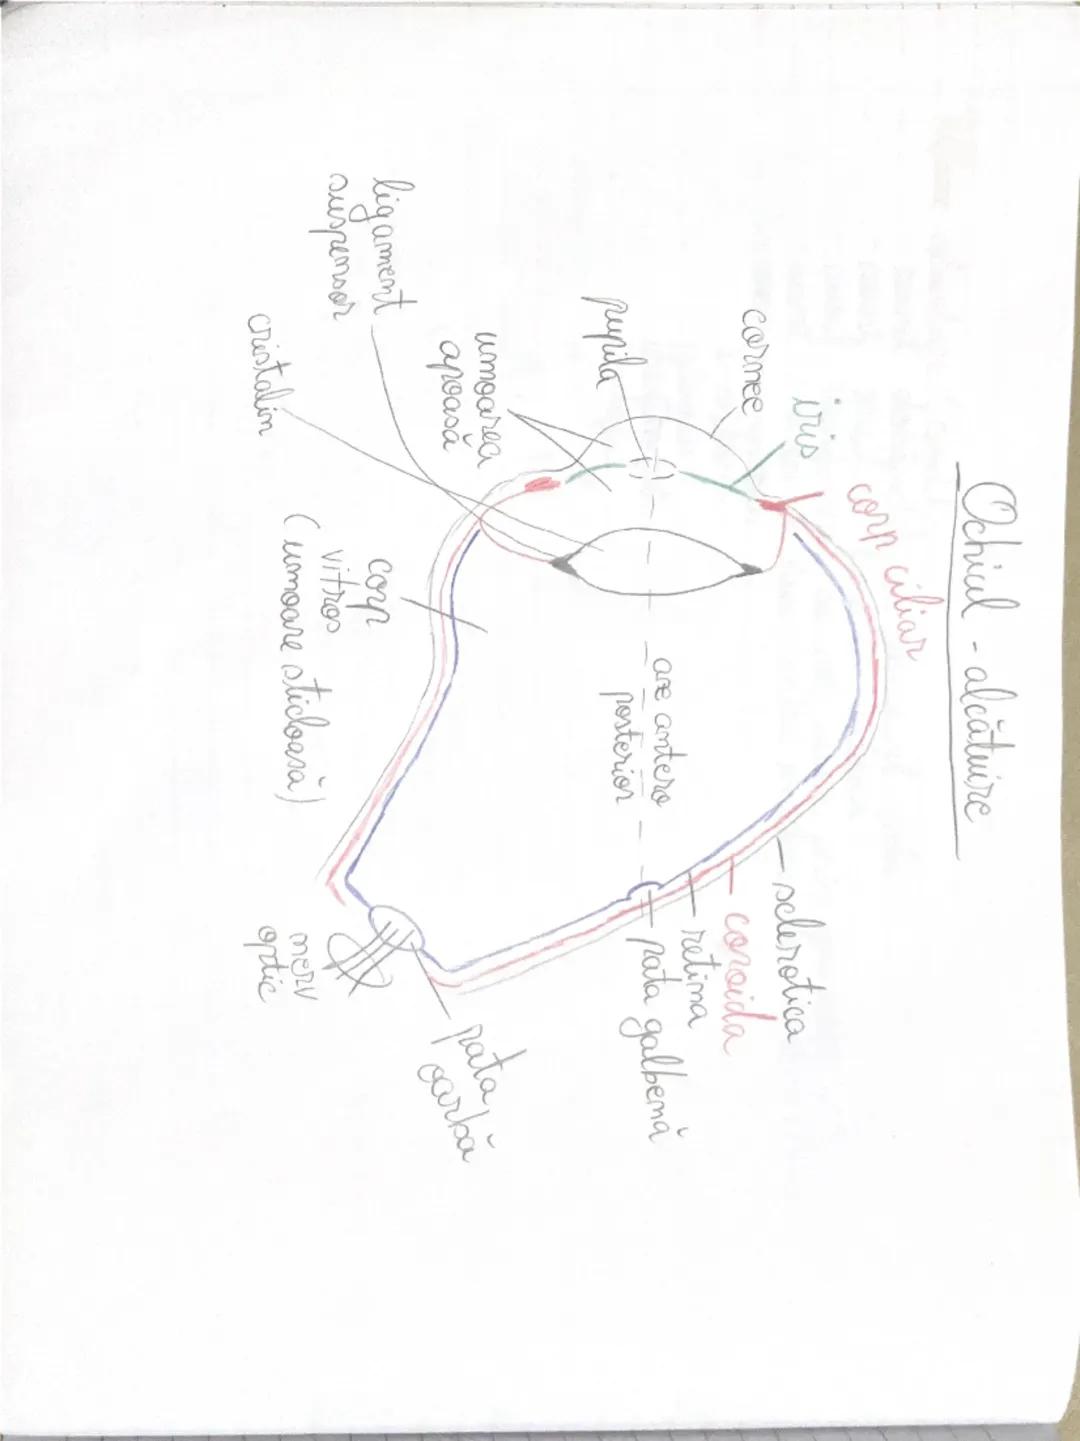 Ochiul - alcătuire
corp ciliar
iris
cornee
pupila
umoarea
apoasă
ligament
suspensor
cristalin
corp
vitros
(umoare sticloasă)
ax antero
posterior
sclerotica
coroida
retina
pata galbenă
pata
oarbă
nerv
optic